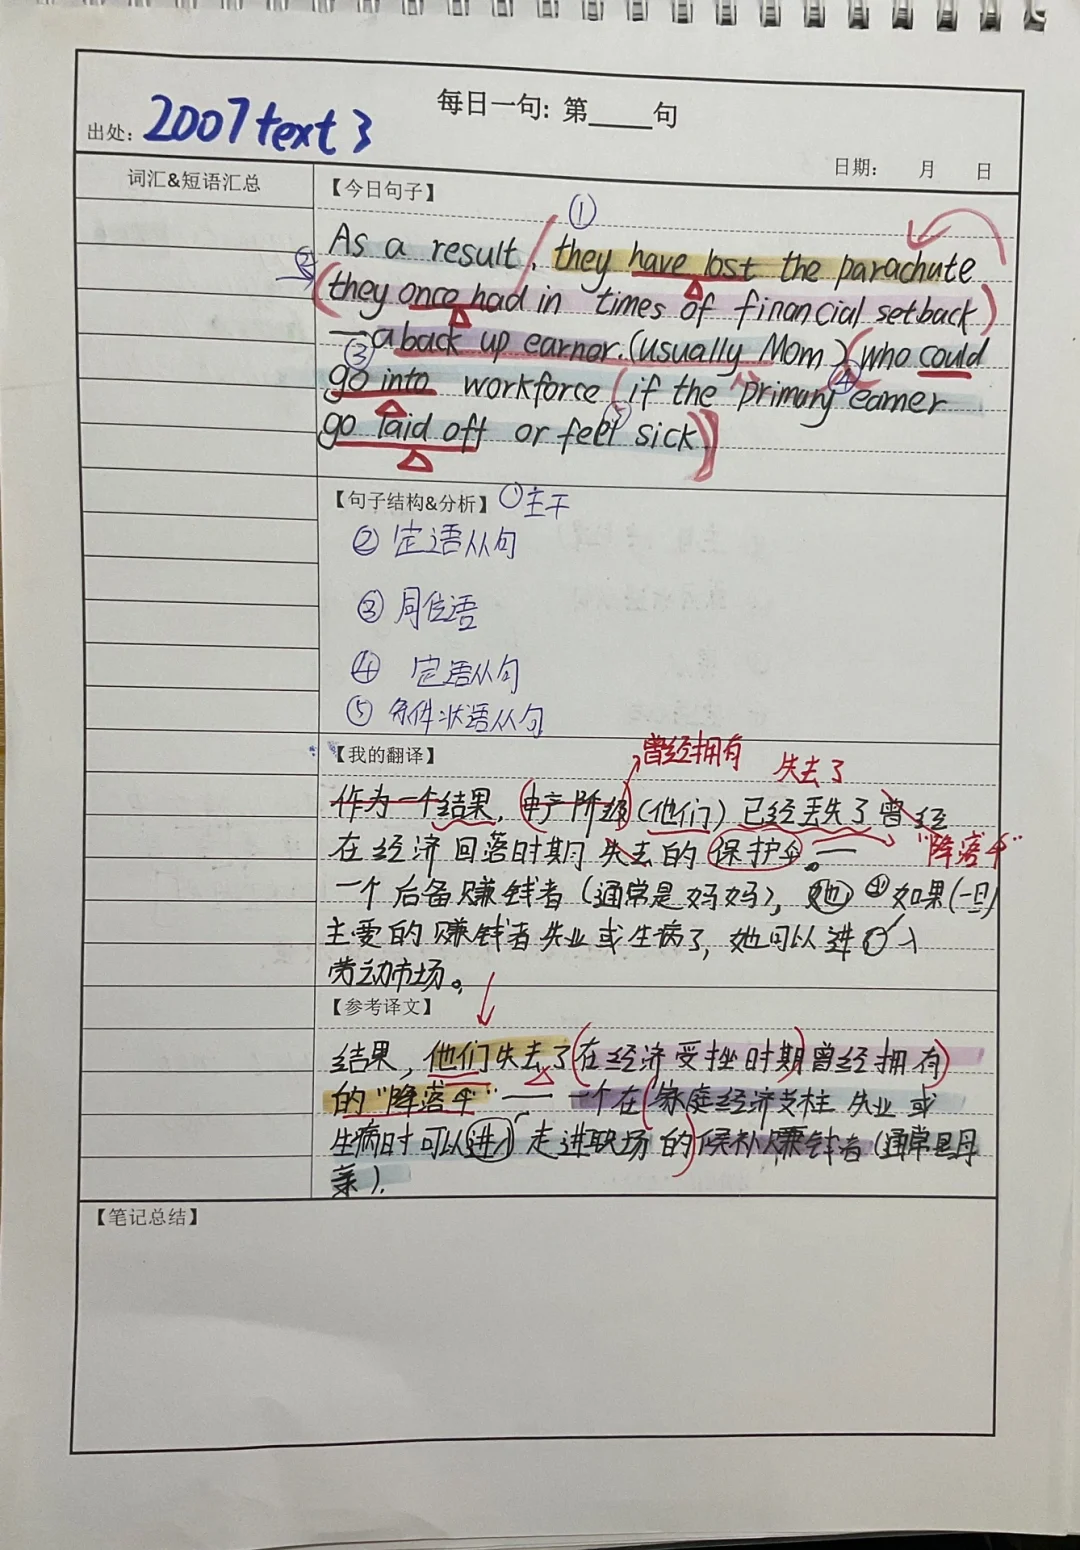 每日一句: 第____句
出处: 2007 text 3
日期: 月 日
词汇&短语汇总
【今日句子】
①
As a result, they have lost the parachute
②
(they once had in times of financial setback)
—a back up earner. (usually Mom) (who could
③ ④
go into workforce (if the primary earner
⑤
go laid off or feel sick)]
【句子结构&分析】 ①主干
② 定语从句
③ 同位语
④ 定语从句
⑤ 条件状语从句
【我的翻译】
曾经拥有 失去了
作为一个结果, (中产阶级) (他们) 已经丢失了曾经
在经济回落时期失去的保护伞。— "降落伞"
一个后备赚钱者 (通常是妈妈), 她 如果(一旦)
主要的赚钱者失业或生病了, 她可以进入
劳动市场。
【参考译文】
结果, 他们失去了(在经济受挫时期)曾经拥有)
的"降落伞" —— 一个在(家庭经济支柱失业或
生病时可以进入走进职场的)候补赚钱者 (通常是母
亲).
【笔记总结】